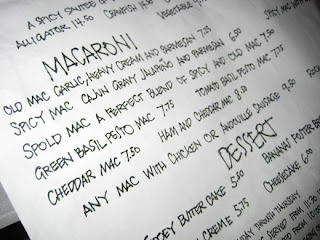 A SPICY SAUTEE OF
ALLIGATOR 14.50 CRAWFISH 14.50 VEGETABLE
SPICY MAC WITH
MACARONI
OLD MAC GARLIC, HEAVY CREAM AND PARMESAN 7.25
SPICY MAC CAJUN GRAVY JALAPEÑO AND PARMESAN 6.50
SPOLD MAC A PERFECT BLEND OF SPICY AND OLD MAC 7.50
GREEN BASIL PESTO MAC 7.75 TOMATO BASIL PESTO MAC 7.75
CHEDDAR MAC 7.50 HAM AND CHEDDAR MAC 8.00
ANY MAC WITH CHICKEN OR ANDOUILLE SAUSAGE 9.50
DESSERT
GOOEY BUTTER CAKE 5.00 BANANAS FOSTER
CREME 5.75 CHEESECAKE 6.00
THROUGH THURSDAY
SERVED FROM 11:30
FROM